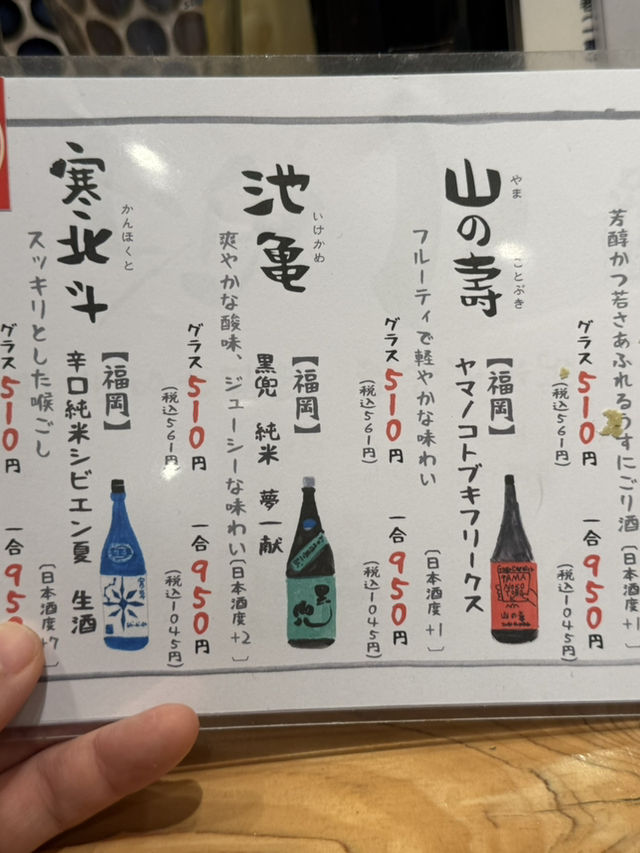 芳醇かつ若さあふれるうすにごり酒
山の壽
やま
ことぶき
【福岡】
ヤマノコトブキフリークス
フルーティで軽やかな味わい
〔日本酒度+1〕
グラス510円
(税込561円)
一合 950円
(税込1045円)
池亀
いけかめ
【福岡】
黒兜 純米 夢一献
爽やかな酸味、ジューシーな味わい
〔日本酒度+2〕
グラス510円
(税込561円)
一合 950円
(税込1045円)
寒北斗
かんほくと
【福岡】
辛口純米シビエン夏 生酒
スッキリとした喉ごし
〔日本酒度+7〕
グラス510円
(税込561円)
一合 950円
(税込1045円)
グラス510円
一合 950